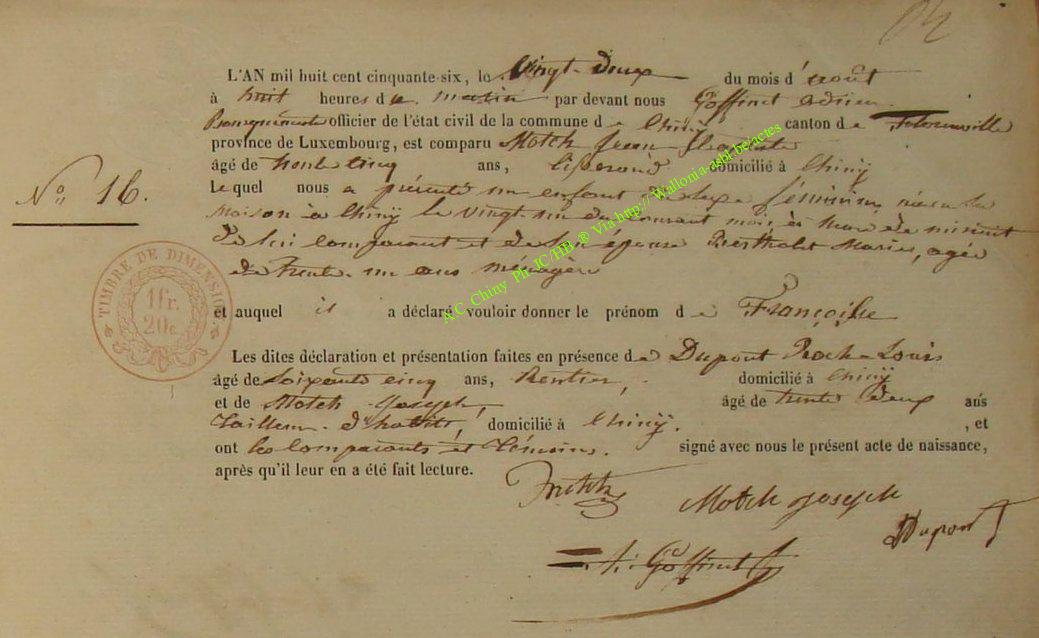 L'AN mil huit cent cinquante-six, le Vingt-Deux du mois d'août
à huit heures du matin par devant nous Goffinet Adrien
Bourgmestre officier de l'état civil de la commune de Chiny canton de Florenville
province de Luxembourg, est comparu Motch Jean
âgé de trente cinq ans, domicilié à Chiny
Le quel nous a présenté un enfant de sexe féminin née en sa
N° 16.
maison à Chiny le vingt-un du courant mois à de minuit
de lui comparant et de son épouse Berthold Marie, agée
de trente-un ans ménagère
TIMBRE DE DIMENSION
1 fr.
20 c.
et auquel il a déclaré vouloir donner le prénom de Françoise
Les dites déclaration et présentation faites en présence de Dupont Roch-Louis
âgé de Soixante cinq ans, Rentier, domicilié à Chiny
et de Motch Joseph, âgé de trente deux ans
Tailleur d'habits, domicilié à Chiny. , et
ont les comparants et témoins. signé avec nous le présent acte de naissance,
après qu'il leur en a été fait lecture.
Motch Joseph
Dupont
A. Goffinet
A.C. Chiny Ph.IC/HB. ® Via http://Wallonia-asbl-be/actes